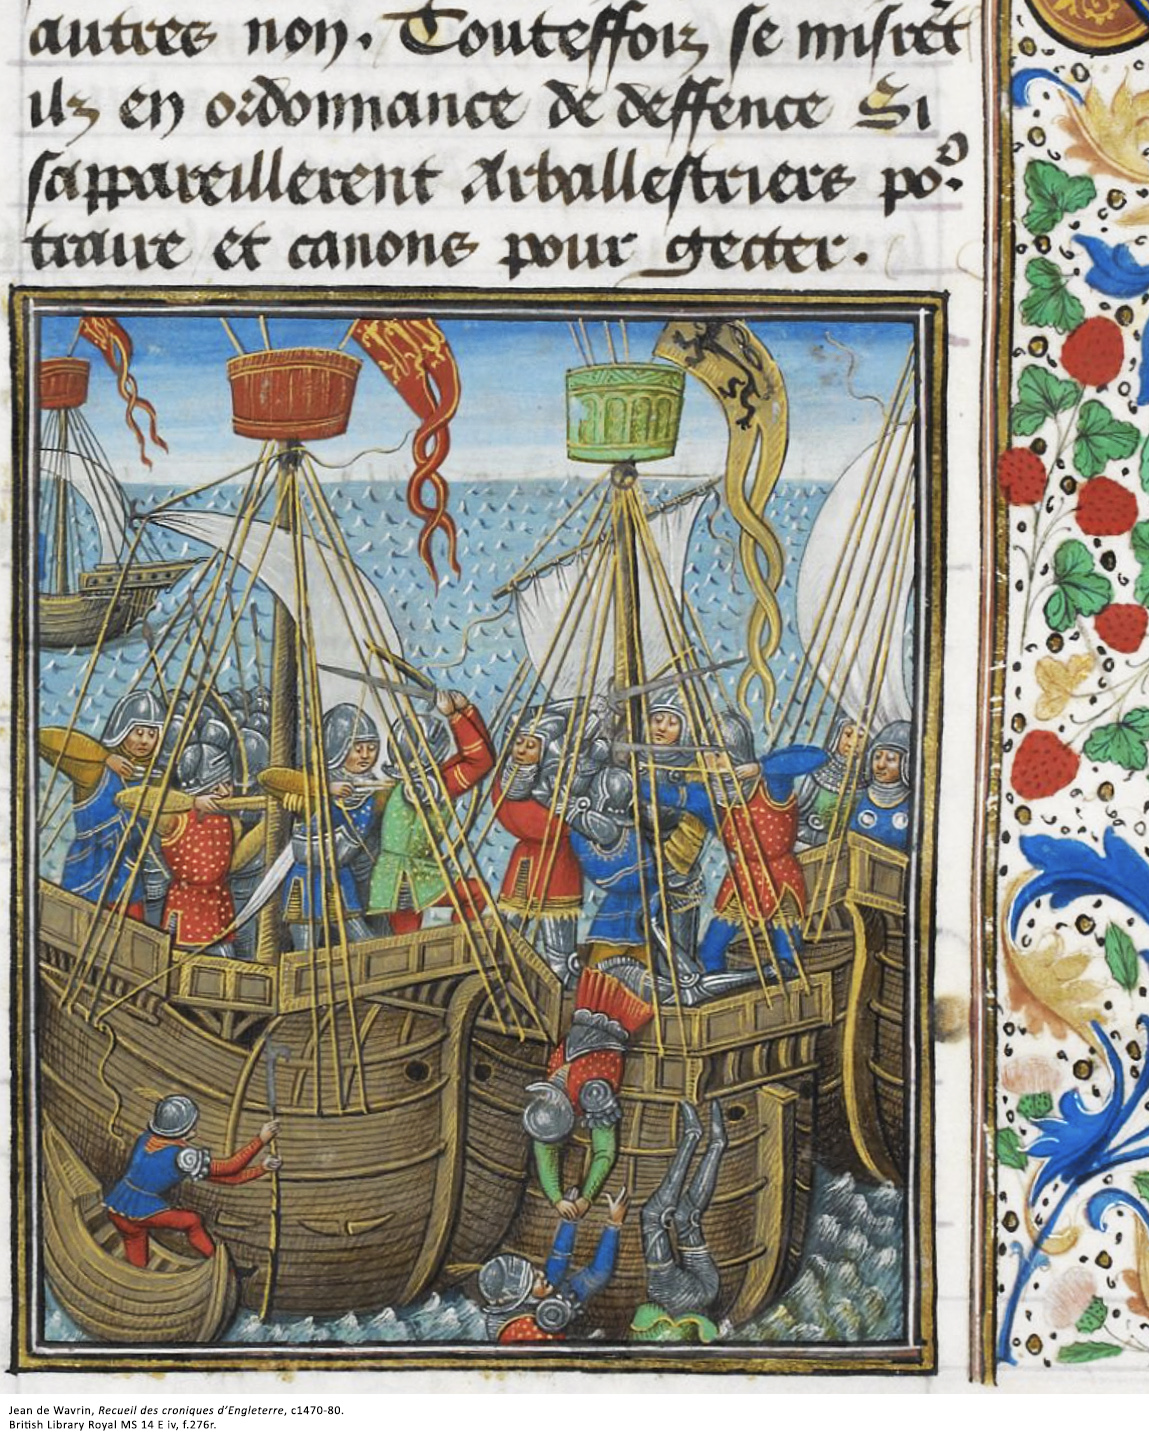 autres non. Touteffoiz se misrẽt
ilz en ordonnance de deffence Si
sappareillerent Arballestriers poᵒ.
traire et canons pour gecter.
Jean de Wavrin, Recueil des croniques d'Engleterre, c1470-80.
British Library Royal MS 14 E iv, f.276r.